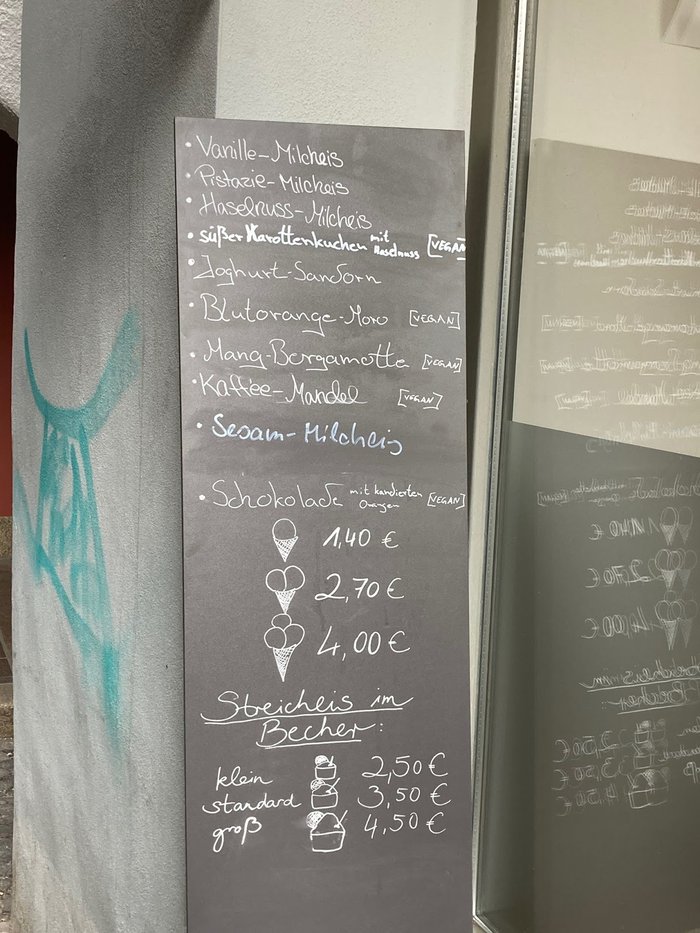 • Vanille-Milcheis
• Pistazie-Milcheis
• Haselnuss-Milcheis
• süßer Karottenkuchen mit Haselnuss [VEGAN]
• Joghurt-Sanddorn
• Blutorange-Moro [VEGAN]
• Mang-Bergamotte [VEGAN]
• Kaffee-Mandel [VEGAN]
• Sesam-Milcheis
• Schokolade mit kandierten Orangen [VEGAN]
1,40 €
2,70 €
4,00 €
Streicheis im
Becher:
klein 2,50 €
standard 3,50 €
groß 4,50 €